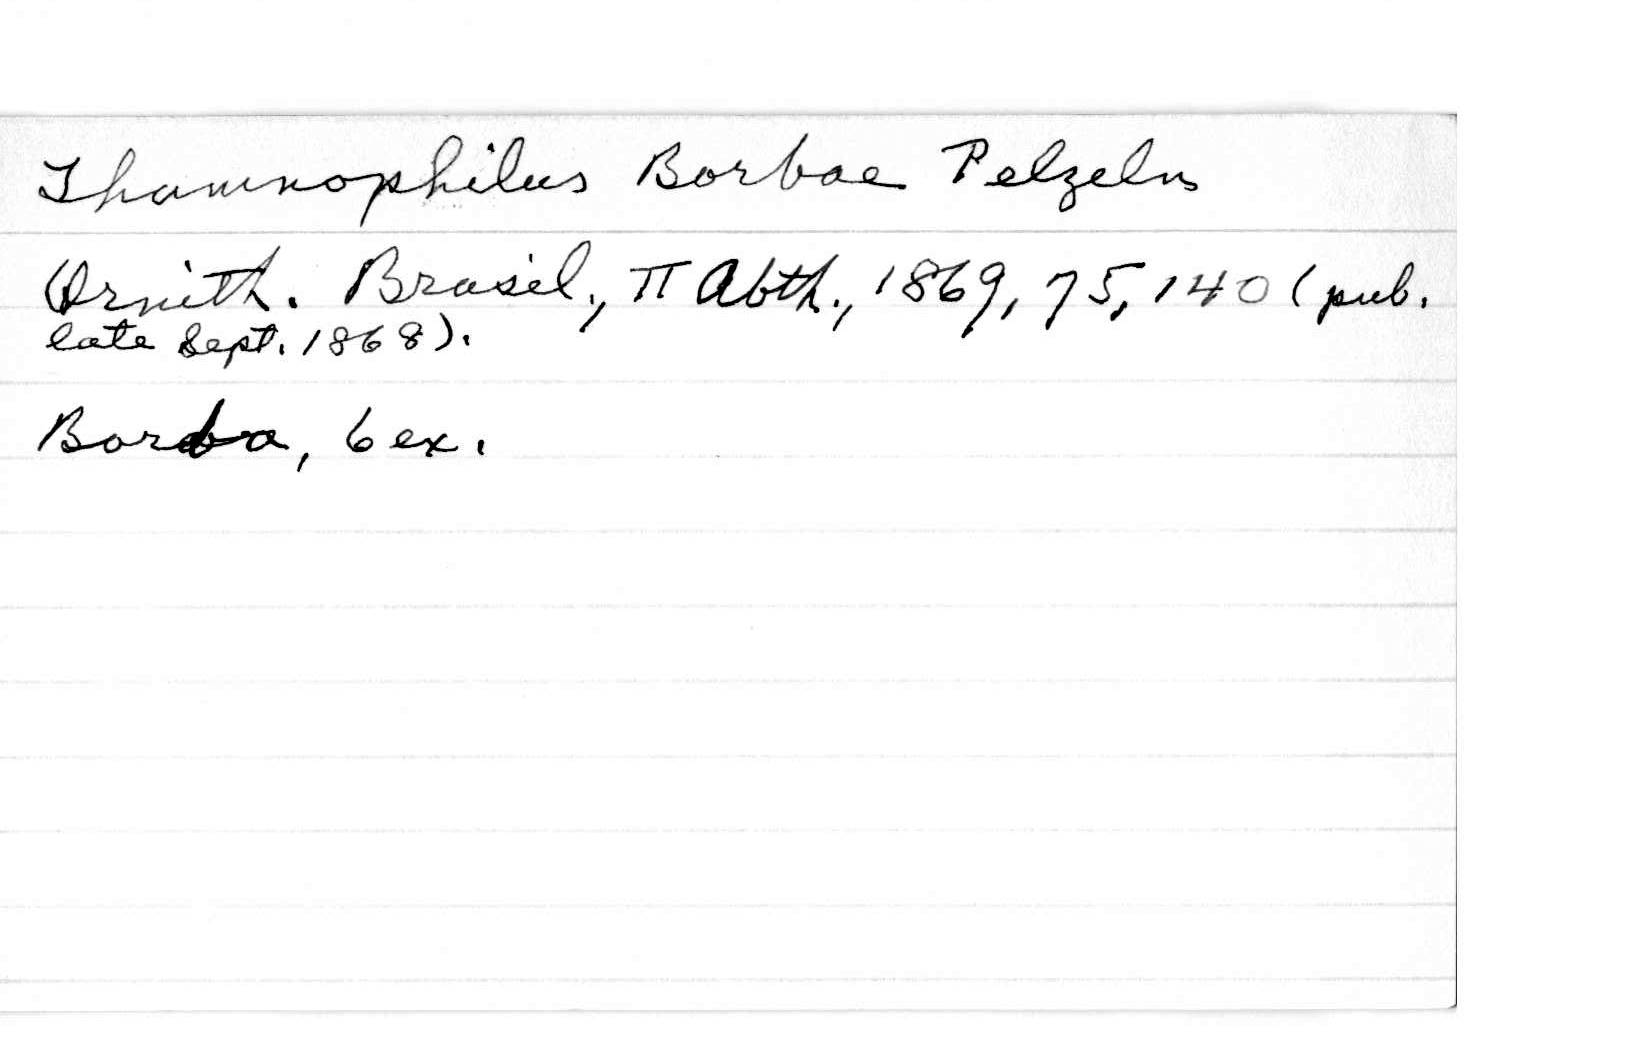 Thamnophilus Borbae Pelzeln
Ornith. Brasil., II Abth., 1869, 75, 140 (pub.
late Sept. 1868).
Borba, 6 ex.